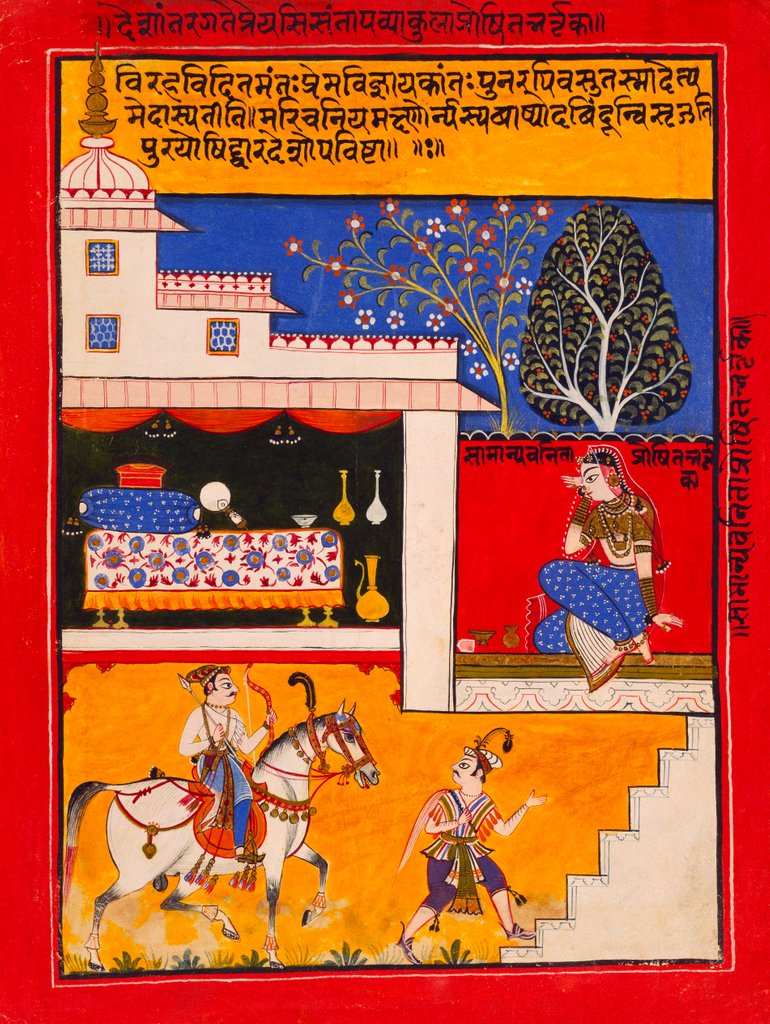 ॥देशांतरगतेप्रेयसिसंतापव्याकुलाप्रोषितभर्तृका॥
विरहविदितमंतःप्रेमविज्ञायकांतःपुनरपिवसुतस्मादेत्य
मेदास्यतीति॥मरिचनियमक्ष्णोर्न्यस्यबाष्पोदबिंदून्विसृजति
पुरयोषिद्द्वारदेशोपविष्टा॥ ॥ः॥
सामान्यवनिता प्रोषितभर्तृ
का
॥सामान्यवनिताप्रोषितभर्तृका॥